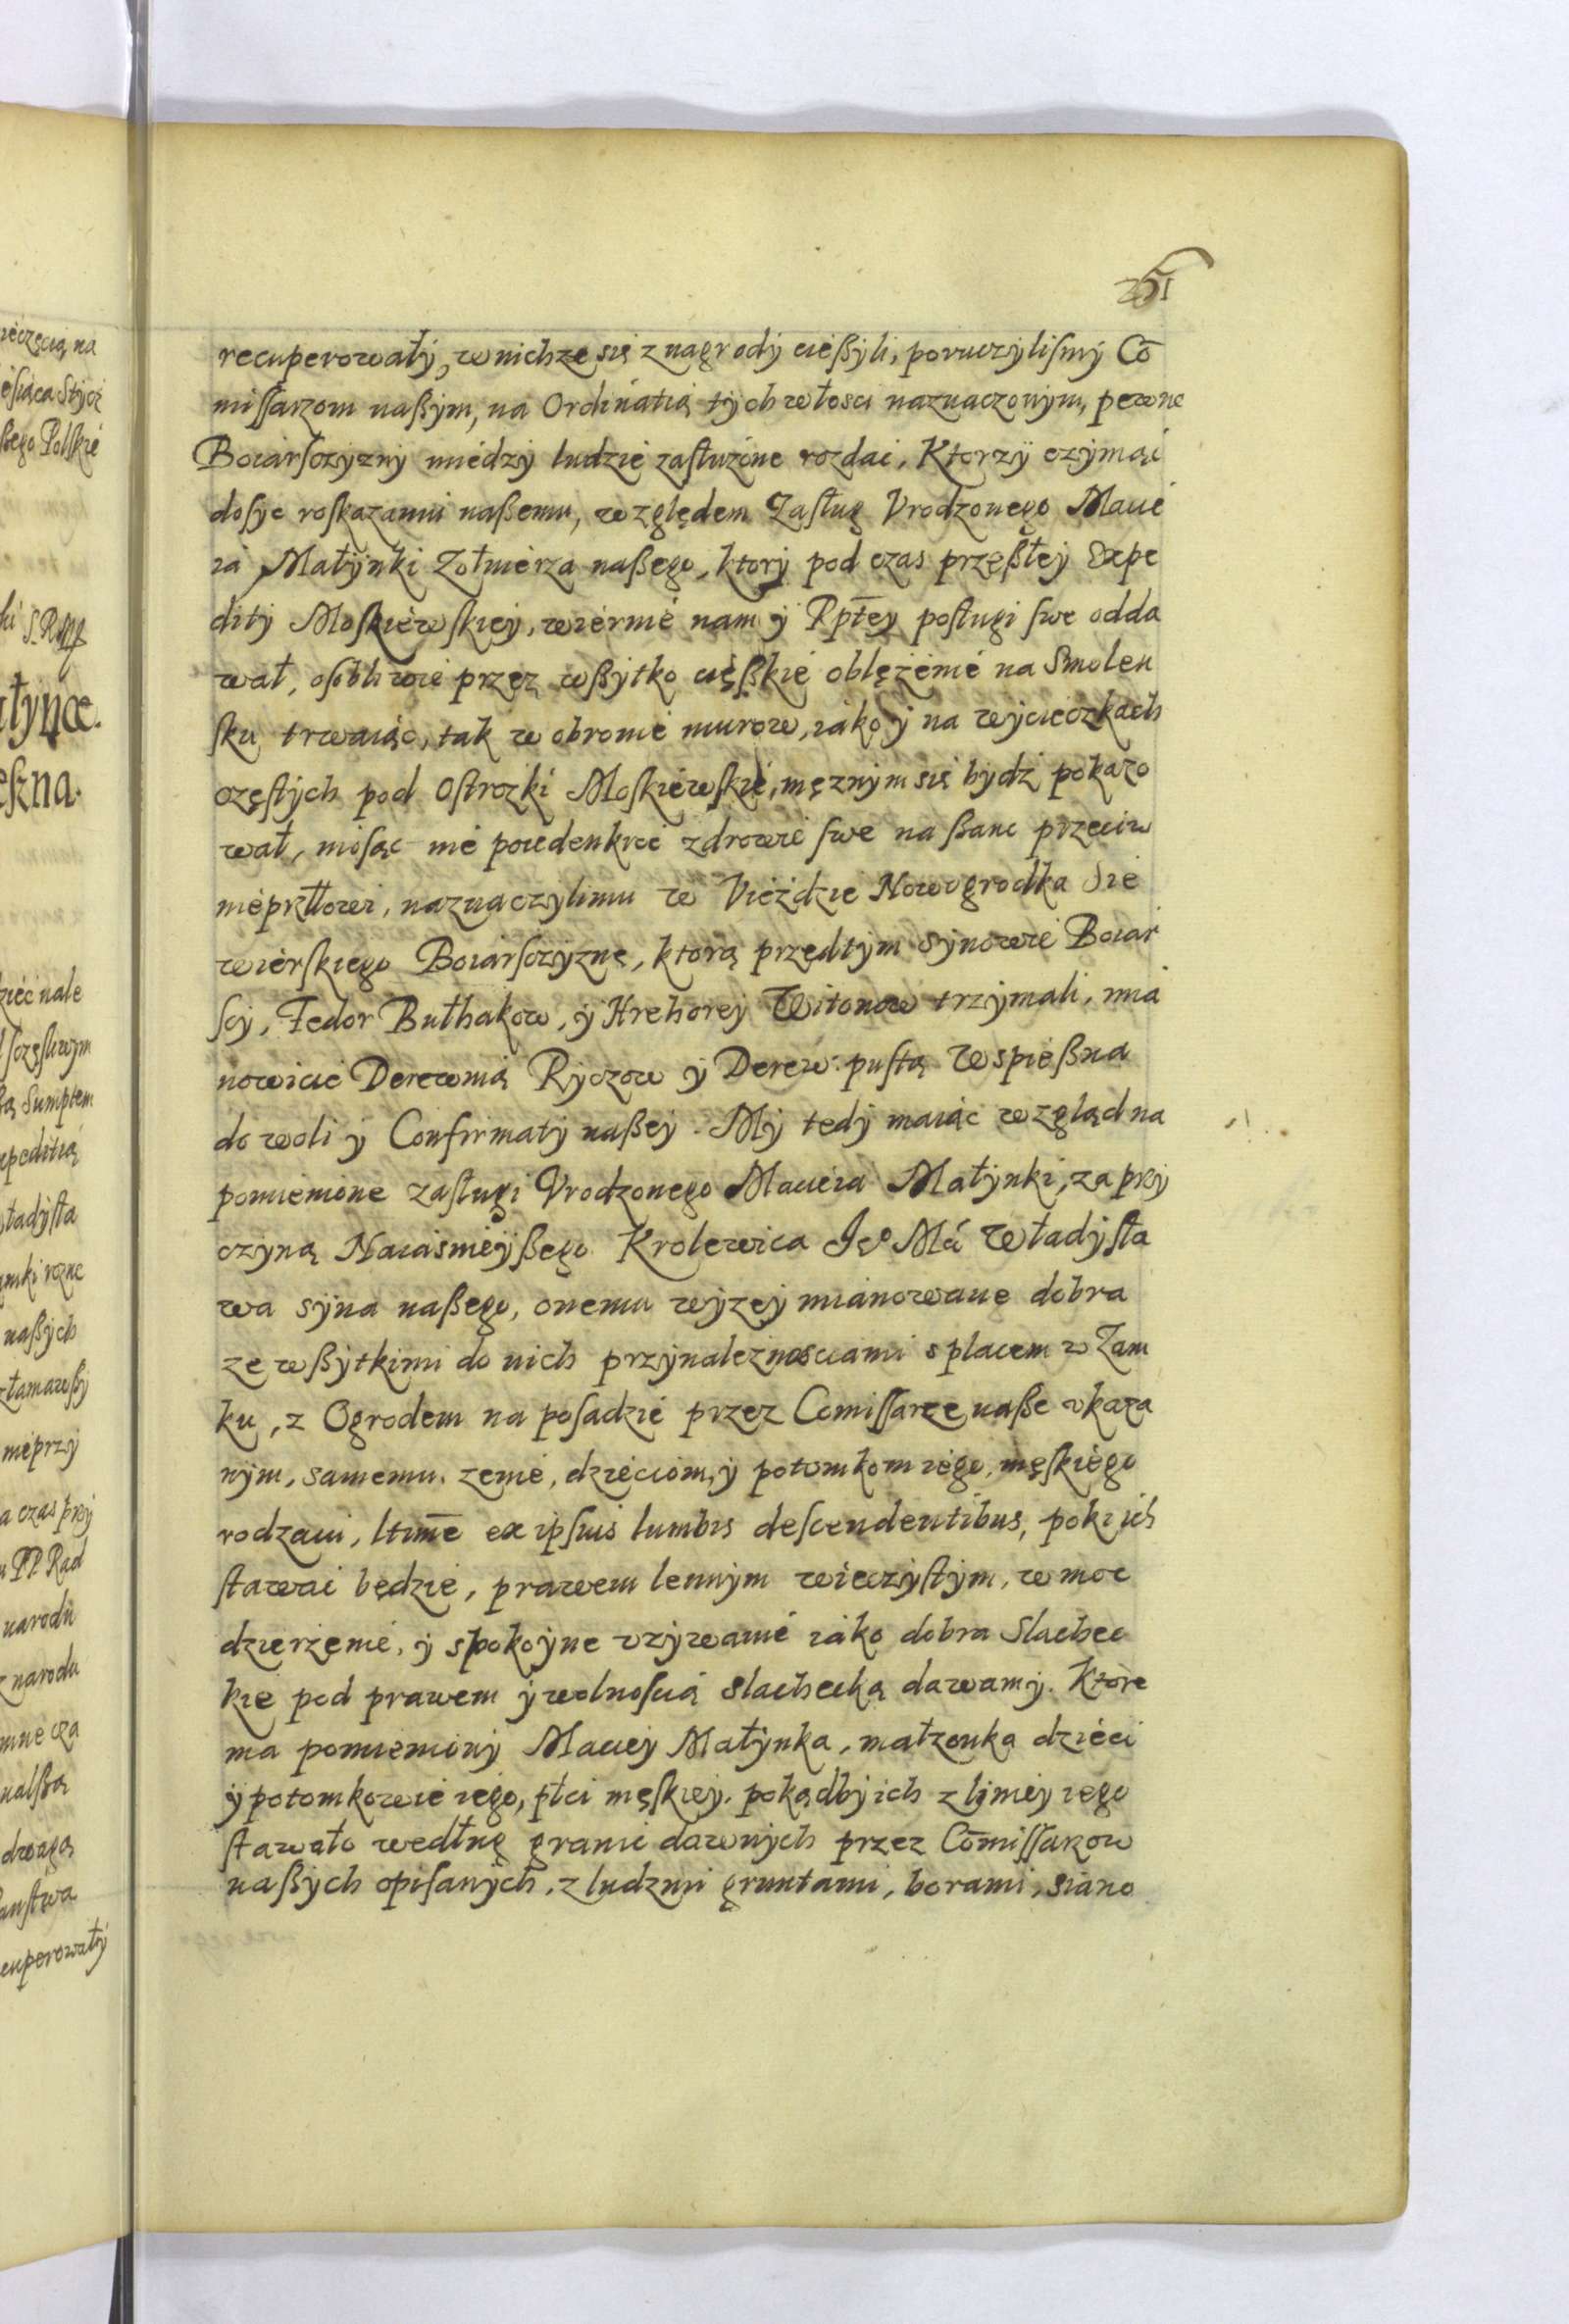 251
recuperowały, w nichze się z nagrody cießyli, poruczylismy Cō
missarzom naßym, na Ordinatią tych włosci naznaczonym, pewne
Boiarsczyzny między ludzie zasłużone rozdać, Ktorzy czyniąć
dosyc roskazaniu naßemu, względem Zasług Vrodzonego Macie
ia Małynki Zołnierza naßego, ktory pod czas przeßłey Expe
dity Moskiewskiey, wiernie nam y Rptey posługi swe odda
wał, osobliwie przez wßytko cięßkie oblężenie na Smolen
sku trwaiąc, tak w obronie murow, iako y na wycieczkach
częstych pod Ostrozki Moskiewskie, mężnym się bydź pokazo
wał, niosąc nie poiedenkroć zdrowie swe na ßanc przeciw
nieprzłłowi, naznaczylimu w Vieździe Nowogrodka Sie
wierskiego Boiarsczyznę, ktorą przedtym synowie Boiar
scy, Fedor Bułhakow, y Hrehorey Witonow trzymali, mia
nowicie Derewnią Ryczow y Derew: pustą Wspießna
do woli y Confirmaty naßey. My tedy maiąc wzgląd na
pomienione zasługi Vrodzonego Macieia Małynki, za przy
czyną Naiasnieyßego Krolewica Ieº Mći Władysła
wa syna naßego, onemu wyzey mianowane dobra
ze wßytkimi do nich przynaleznosciami s placem w Zam
ku, z Ogrodem na posadzie przez Comissarze naße vkaza
nym, samemu, żenie, dzieciom, y potomkom iego, męskiego
rodzaiu, ltime ex ipsius lumbis descendentibus, poki ich
stawać będzie, prawem lennym wieczystym, w moc
dzierżenie, y spokoyne vzywanie iako dobra Slachec
kie pod prawem y wolnoscią slachecką dawamy. Ktore
ma pomieniony Maciey Małynka, małzonka dzieci
y potomkowie iego, płci męskiey, pokądby ich z liniey iego
stawało według granic dawnych przez Cōmissarzow
naßych opisanych, z ludzmi gruntami, borami, siano